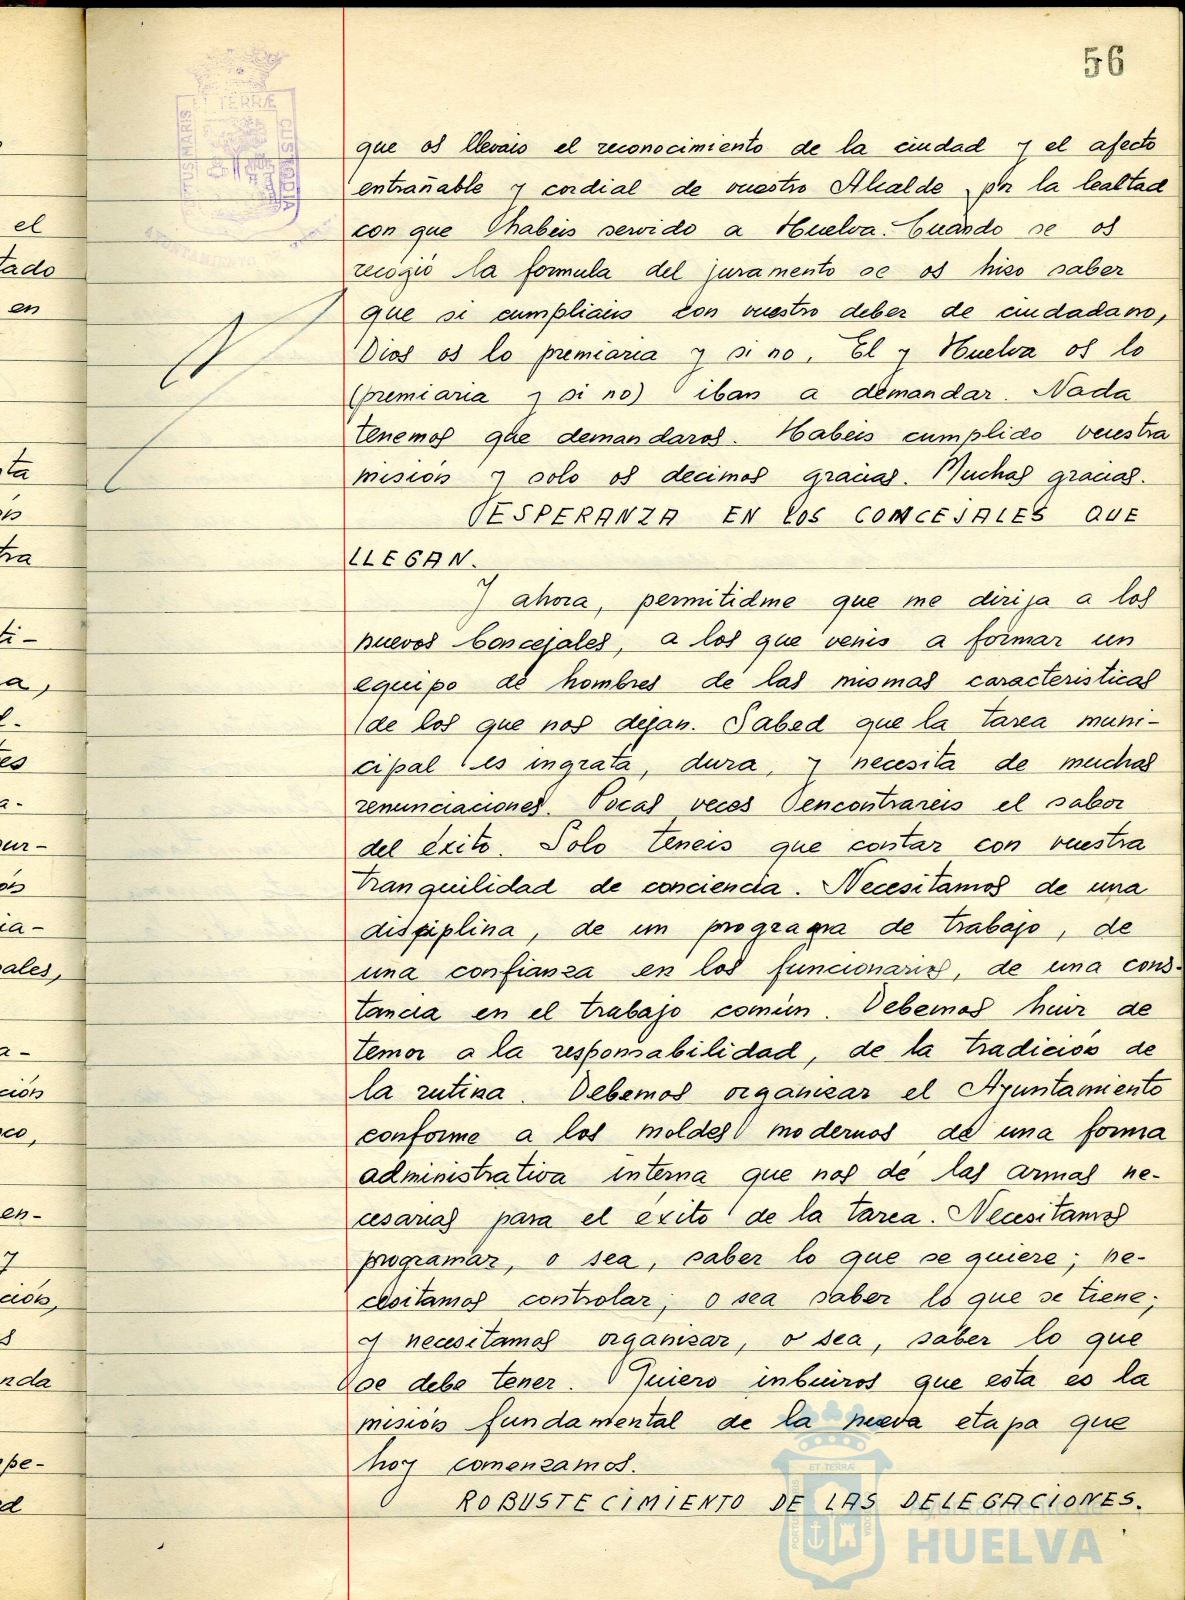 56
PORTUS MARIS ET TERRÆ CUSTODIA
AYUNTAMIENTO
que os llevais el reconocimiento de la ciudad y el afecto
entrañable y cordial de vuestro Alcalde por la lealtad
con que habéis servido a Huelva. Cuando se os
recogió la formula del juramento se os hizo saber
que si cumpliais con vuestro deber de ciudadano,
Dios os lo premiaria y si no, El y Huelva os lo
(premiaria y si no) iban a demandar. Nada
tenemos que demandaros. Habéis cumplido vuestra
misión y solo os decimos gracias. Muchas gracias.
ESPERANZA EN LOS CONCEJALES QUE
LLEGAN.
Y ahora, permitidme que me dirija a los
nuevos Concejales, a los que venis a formar un
equipo de hombres de las mismas caracteristicas
de los que nos dejan. Sabed que la tarea muni-
cipal es ingrata, dura, y necesita de muchas
renunciaciones. Pocas veces encontrareis el sabor
del éxito. Solo teneis que contar con vuestra
tranquilidad de conciencia. Necesitamos de una
disciplina, de un programa de trabajo, de
una confianza en los funcionarios, de una cons-
tancia en el trabajo común. Debemos huir de
temor a la responsabilidad, de la tradición de
la rutina. Debemos organizar el Ayuntamiento
conforme a los moldes modernos de una forma
administrativa interna que nos dé las armas ne-
cesarias para el éxito de la tarea. Necesitamos
programar, o sea, saber lo que se quiere; ne-
cesitamos controlar; o sea saber lo que se tiene;
y necesitamos organizar, o sea, saber lo que
se debe tener. Quiero imbuiros que esta es la
misión fundamental de la nueva etapa que
hoy comenzamos.
ROBUSTECIMIENTO DE LAS DELEGACIONES.
Ayuntamiento de
HUELVA
el
tado
en
nta
tra
ti-
a,
tes
a-
pur-
ia-
pales,
a-
ción
co,
en-
y
ción,
nda
pe-
d